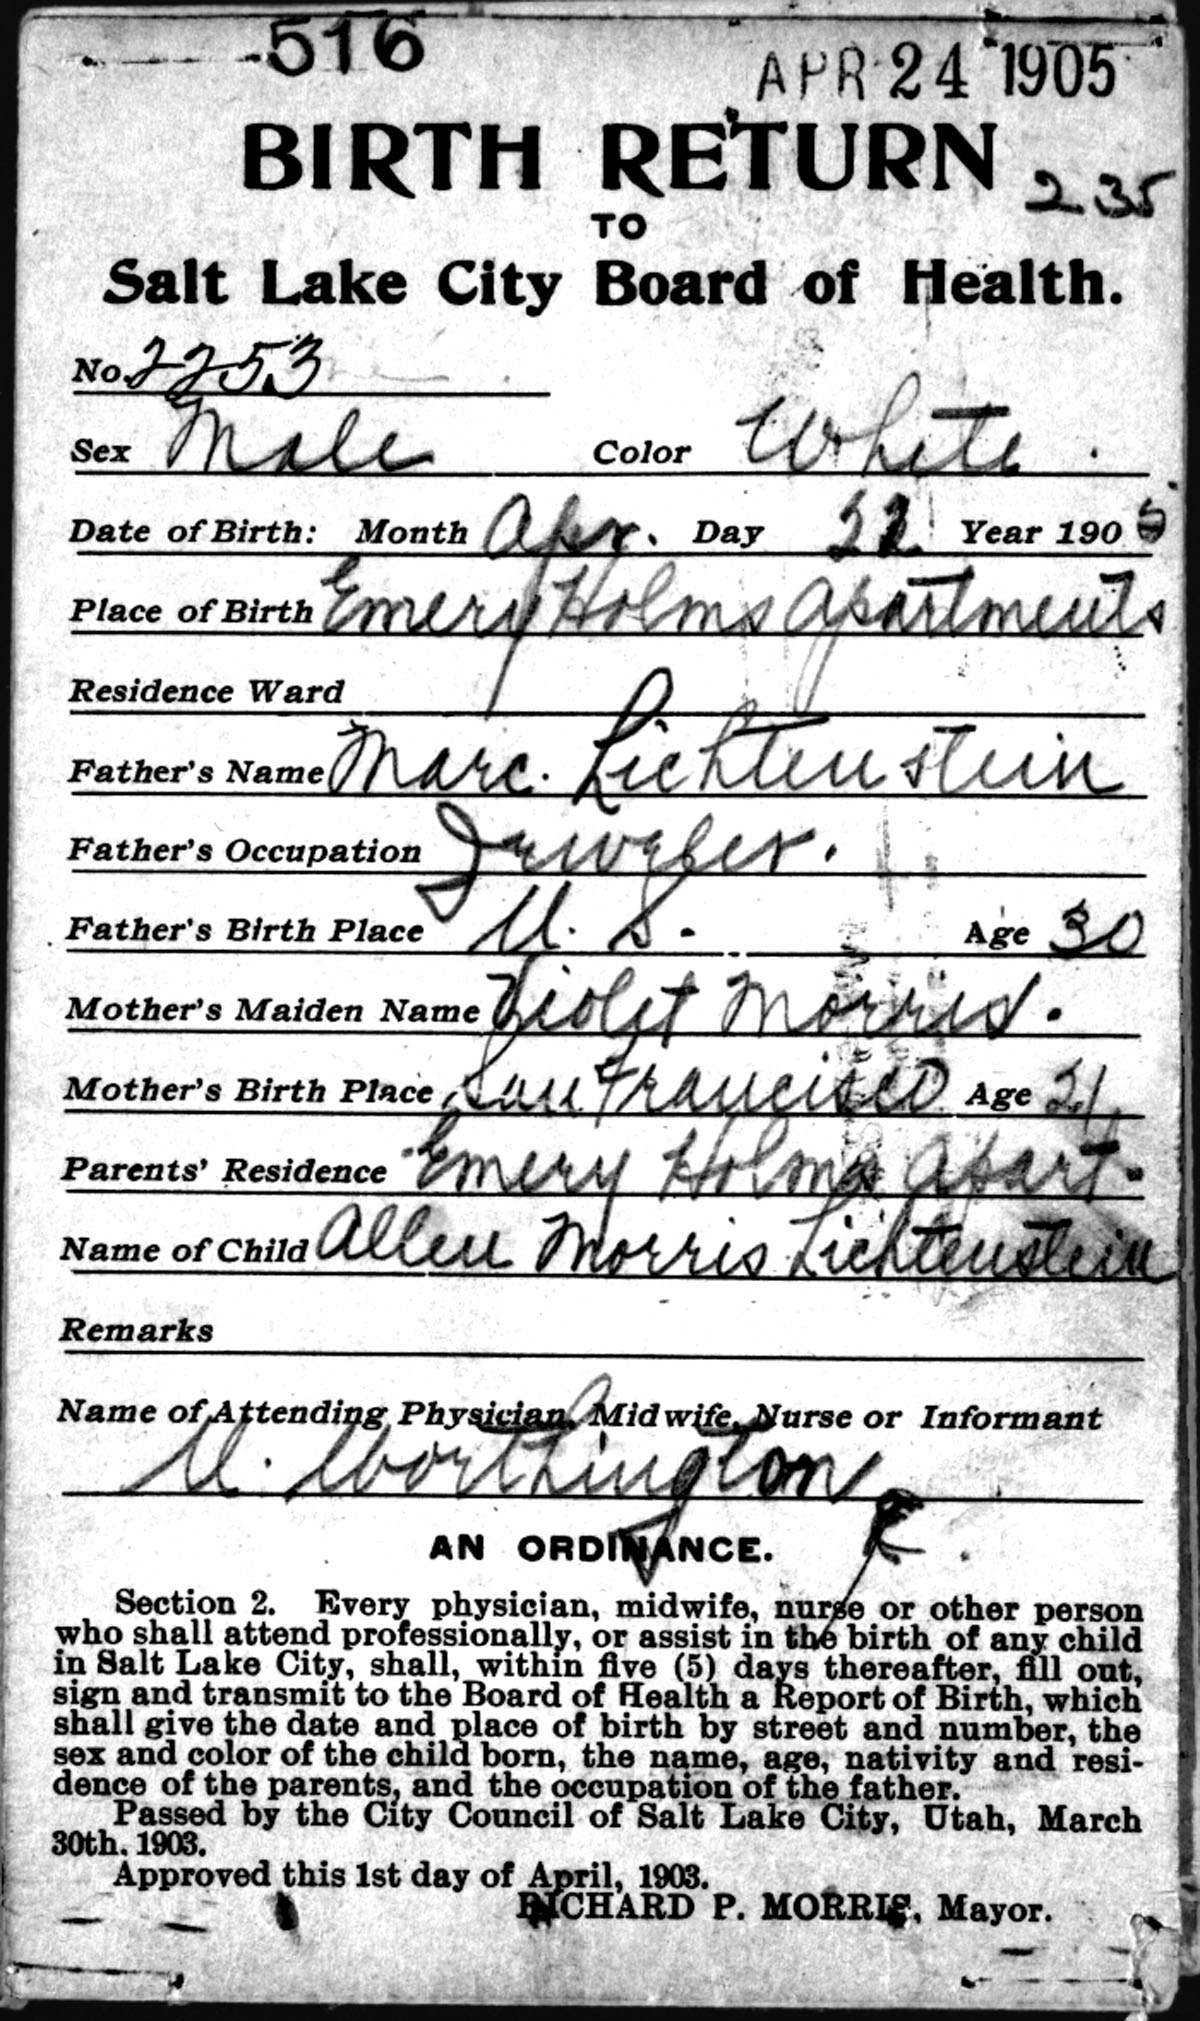 516
APR 24 1905
BIRTH RETURN
235
TO
Salt Lake City Board of Health.
No. 2253
Sex Male Color White.
Date of Birth: Month Apr. Day 22 Year 1905
Place of Birth Emery Holms Apartments
Residence Ward
Father's Name Marc. Lichtenstein
Father's Occupation Jeweler.
Father's Birth Place U. S. Age 30
Mother's Maiden Name Violet Morris.
Mother's Birth Place San Francisco Age 21
Parents' Residence Emery Holms Apart.
Name of Child Allen Morris Lichtenstein
Remarks
Name of Attending Physician, Midwife, Nurse or Informant
U. Worthington
AN ORDINANCE.
Section 2. Every physician, midwife, nurse or other person
who shall attend professionally, or assist in the birth of any child
in Salt Lake City, shall, within five (5) days thereafter, fill out,
sign and transmit to the Board of Health a Report of Birth, which
shall give the date and place of birth by street and number, the
sex and color of the child born, the name, age, nativity and resi-
dence of the parents, and the occupation of the father.
Passed by the City Council of Salt Lake City, Utah, March
30th, 1903.
Approved this 1st day of April, 1903.
RICHARD P. MORRIS, Mayor.